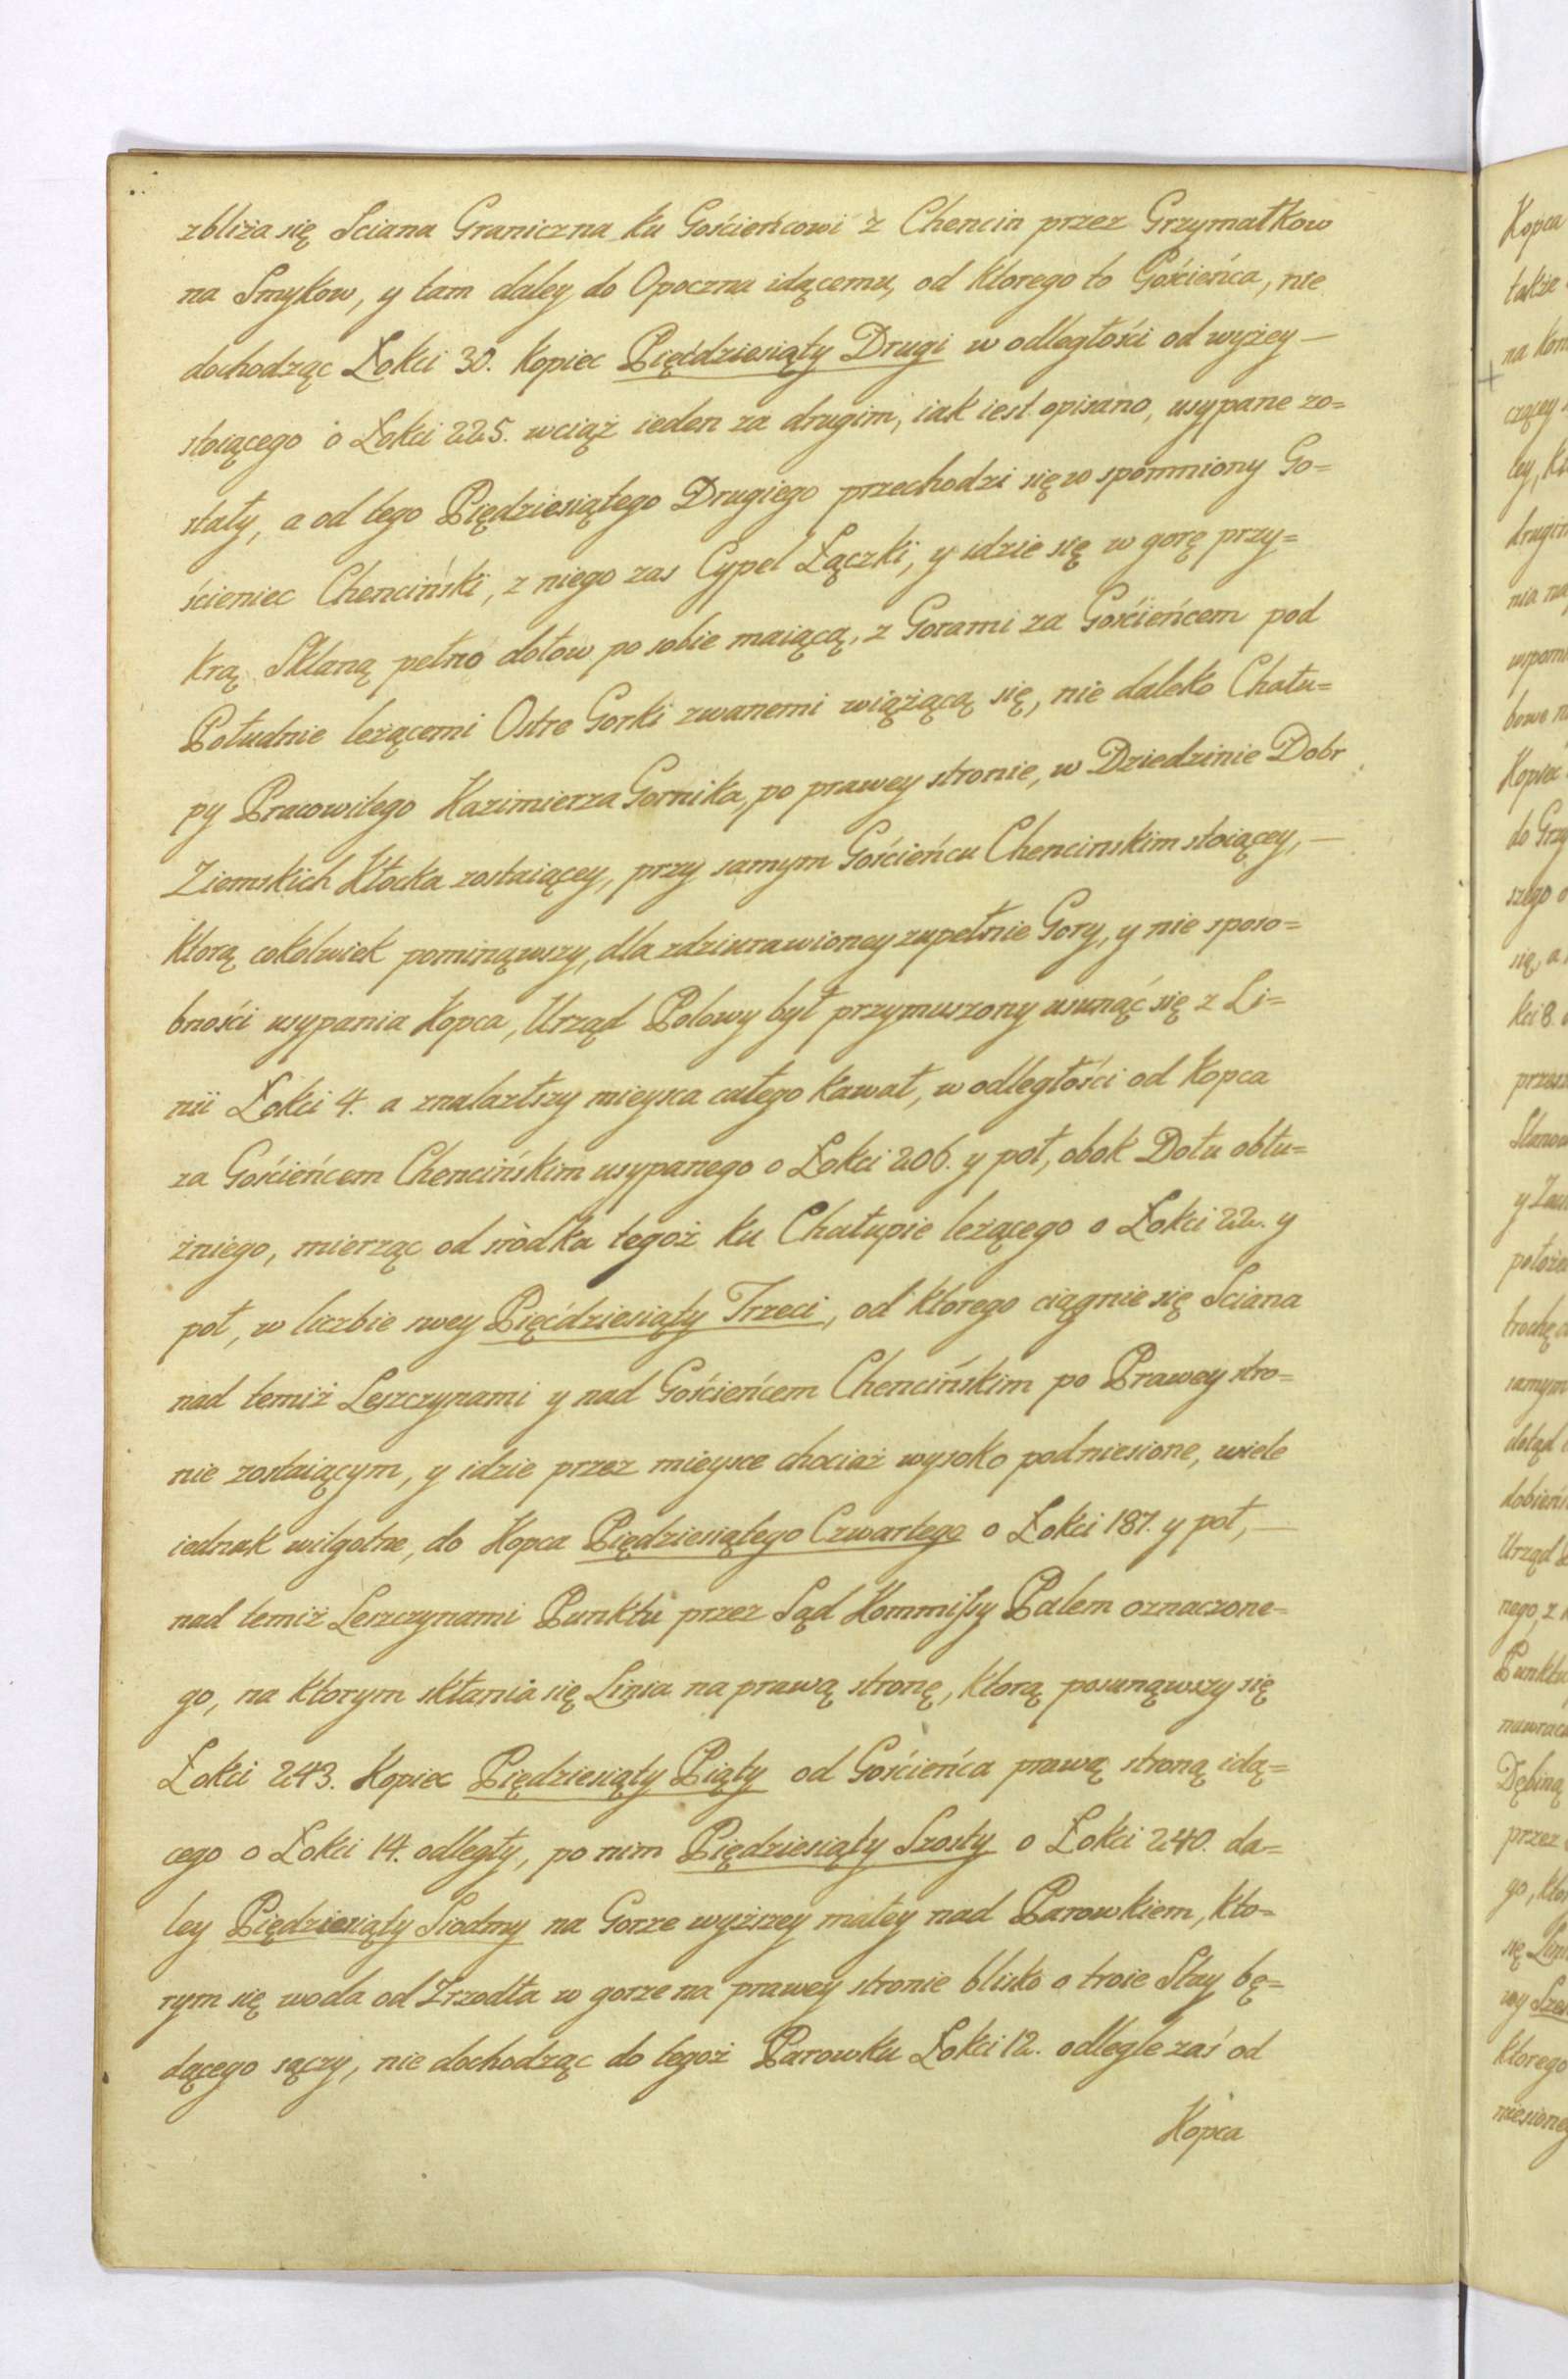 zbliża się Sciana Graniczna ku Gościeńcowi z Chencin przez Grzymałkow
na Smykow, y tam daley do Opoczna idącemu, od ktorego to Gościeńca, nie
dochodząc Łokci 30. Kopiec Pięćdziesiąty Drugi w odległości od wyżey —
stoiącego o Łokci 225. wciąż ieden za drugim, iak iest opisano, usypane zo=
stały, a od tego Piędziesiątego Drugiego przechodzi się wspomniony Go=
ścieniec Chenciński, z niego zas Cypel Łączki, y idzie się w gorę przy=
krą Sklaną pełno dołow po sobie maiącą, z Gorami za Gościeńcem pod
Południe leżącemi Ostre Gorki zwanemi wiążącą się, nie daleko Chału=
py Pracowitego Kazimierza Gornika, po prawey stronie, w Dziedzinie Dobr
Ziemskich Kłocka zostaiącey, przy samym Gościeńcu Chencinskim stoiącey, —
ktorą cokolwiek pominąwszy, dla zdziurawioney zupełnie Gory, y nie sposo=
bności usypania Kopca, Urząd Polowy był przymuszony usunąć się z Li=
nii Łokci 4. a znalazłszy mieysca całego kawał, w odległości od Kopca
za Gościeńcem Chencińskim usypanego o Łokci 206. y poł, obok Dołu obłu=
żniego, mierząc od srodka tegoż ku Chałupie leżącego o Łokci 22. y
poł, w liczbie swey Pięćdziesiąty Trzeci, od ktorego ciągnie się Sciana
nad temiż Leszczynami y nad Gościeńcem Chencińskim po Prawey stro=
nie zostaiącym, y idzie przez mieysce chociaż wysoko podniesione, wiele
iednak wilgotne, do Kopca Piędziesiątego Czwartego o Łokci 187. y poł, —
nad temiż Leszczynami Punktu przez Sąd Kommissy Palem oznaczone=
go, na ktorym skłania się Linia na prawą stronę, ktorą posunąwszy się
Łokci 243. Kopiec Piędziesiąty Piąty od Gościeńca prawą stroną idą=
cego o Łokci 14. odległy, po nim Piędziesiąty Szosty o Łokci 240. da=
ley Piędziesiąty Siodmy na Gorze wyższey małey nad Parowkiem, kto=
rym się woda od Zrzodła w gorze na prawey stronie blisko o troie Stay bę=
dącego sączy, nie dochodząc do tegoż Parowku Łokci 12. odległe zaś od
Kopca